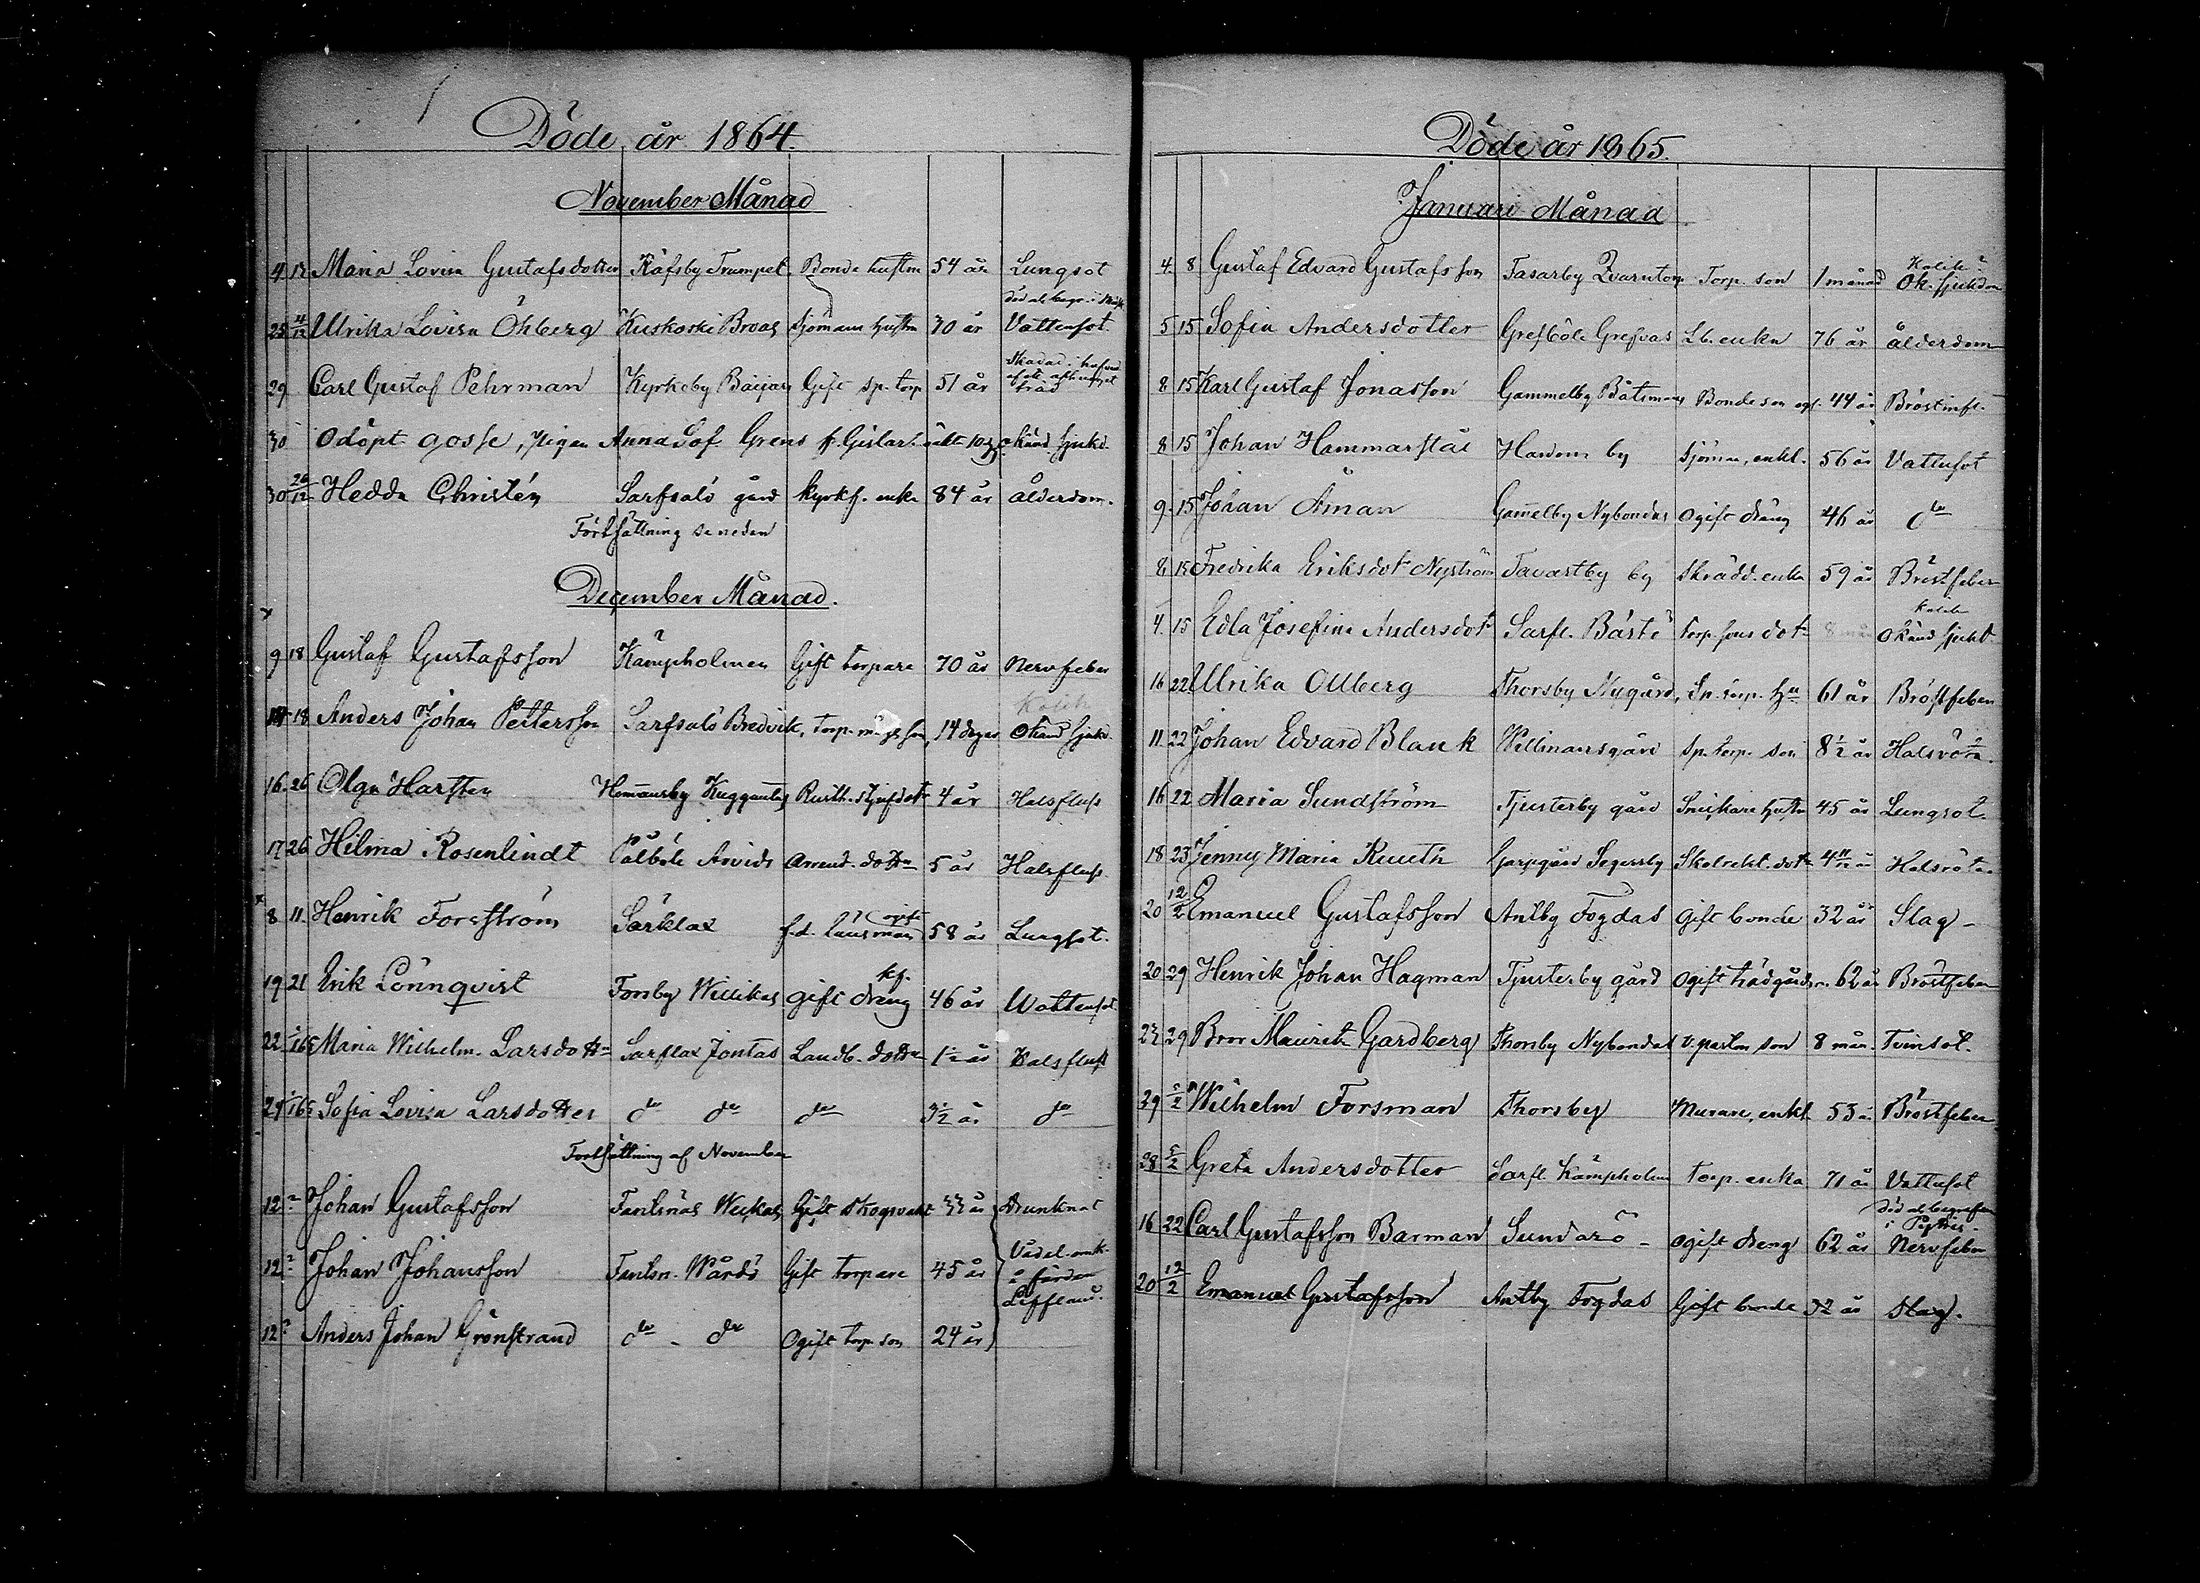 Döde år 1864.
November Månad
4 12 Maria Lovisa Gustafsdotter Räfsby Trumpet Bonde hustru 54 år Lungsot
25 4/12 Ulrika Lovisa Öhberg Kuskoski Broas Sjömans hustru 30 år död o. begr. i Vattusot.
29 Carl Gustaf Pehrman Kyrkoby Gift sp. torp 51 år Skadad i hufvud af ett träd
30 Odöpt gosse, Pigan Anna Sof. Grens okänd sjukd.
30 26/12 Hedda Christén Sarfsalö gård kyrkf. enka 84 år Ålderdom.
Fortsättning se nedan
December Månad.
9 18 Gustaf Gustafsson Kämpholmen Gift torpare 70 år Nervfeber
14 18 Anders Johan Pettersson Sarfsalö Bredvik, torp. son, 14 dagar Kolik Okänd sjukd.
16 26 Olga Harsten Hommansby Kuggantas Rusth. styfdotr 4 år Halsfluss
17 26 Hilma Rosenlindt Pålböle Arvids Arrend. dottr 5 år Halsfluss
8 11. Henrik Forsström Särklax f.d. länsman gift 58 år Lungsot.
19 21 Erik Lönnqvist Forsby Willikas gift dräng 46 år Wattusot
22 Maria Wilhelm. Larsdottr Sarflax Jontas Landb. dottr 1 1/2 år Halsfluss
29 Sofia Lovisa Larsdotter do do do 3 1/2 år do
Fortsättning af November
12 Johan Gustafsson Fantsnäs Weckas Gift skogsvakt 33 år Drunknat
12 Johan Johansson Fantsn. Wårdö Gift torpare 45 år Vådel. omk. å fjärden Leffland.
12 Anders Johan Grönstrand do - do Ogift torp. son 24 år
Döde år 1865.
Januari Månad
4 8 Gustaf Edvard Gustafsson Tasarby Qvarntorp Torp. son 1 månad Kolik? Ok. sjukdom
5 15 Sofia Andersdotter Grefböle Grefvas Lb. enka 76 år ålderdom
8 15 Karl Gustaf Jonasson Gammelby Båtsmans Bonde son ogf. 44 år Bröstinfl.
8 15 Johan Hammarstål Hardom by Sjöman, enkl. 56 år Vattusot
9 15 Johan Åman Gamelby Nybondas Ogift dräng 46 år do
8 15 Fredrika Eriksdotr Nyström Tavastby by Skrädd. enka 59 år Bröstfeber
4 15 Edla Josefina Andersdotr Sarfl. Bårstö Torp. sons dotr 8 mån Kolik Okänd sjukd.
16 22 Ulrika Ollberg Thorsby Nygård, Sp. torp. hu 61 år Bröstfeber
11 22 Johan Edvard Blank Willmansgård Sp. torp. son 8 1/2 år Halsröta.
16 22 Maria Sundström Tjusterby gård Snickare hustru 45 år Lungsot.
18 23 Jenny Maria Knuth Garpgård Segersby Skolrekt. dotr 4 11/12 år Halsröta
20 12/2 Emanuel Gustafsson Antby Fogdas Gift bonde 32 år Slag -
20 29 Henrik Johan Hagman Tjusterby gård Ogift trädgårdsm. 62 år Bröstfeber
23 29 Bror Mauritz Gardberg Thorsby Nybondas v. pastor son 8 mån. Tvinsot.
29 5/2 Wilhelm Forsman Thorsby Murare, enkl 53 år Bröstfeber
28 5/2 Greta Andersdotter Sarfl. Kämpholm Torp. enka 71 år Vattusot
16 22 Carl Gustafsson Barman Sundarö - Ogift dräng 62 år Död o. begrafven i Nervfeber
20 12/2 Emanuel Gustafsson Antby Fogdas Gift bonde 32 år Slag.